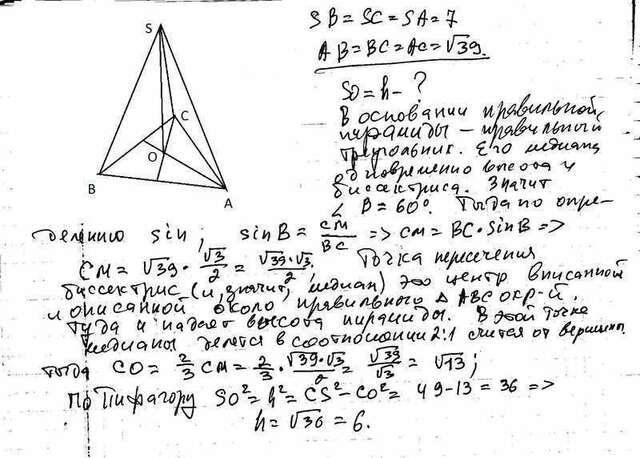 S
C
O
B
A
SB = SC = SA = 7
AB = BC = AC = √39.
SO = h - ?
В основании правильной
пирамиды – правильный
треугольник. Его медиана
одновременно высота и
биссектриса. Значит
∠ B = 60°. Тогда по опре-
делению sin; sin B = CM/BC => CM = BC · sin B =>
CM = √39 · √3/2 = √39·√3/2. Точка пересечения
биссектрис (и, значит, медиан) это центр вписанной
и описанной около правильного Δ ABC окр-й.
Туда и падает высота пирамиды. В этой точке
медианы делятся в соотношении 2:1 считая от вершины.
тогда CO = 2/3 CM = 2/3 · √39·√3/2 = √39/√3 = √13;
По Пифагору SO² = h² = CS² – CO² = 49 – 13 = 36 =>
h = √36 = 6.